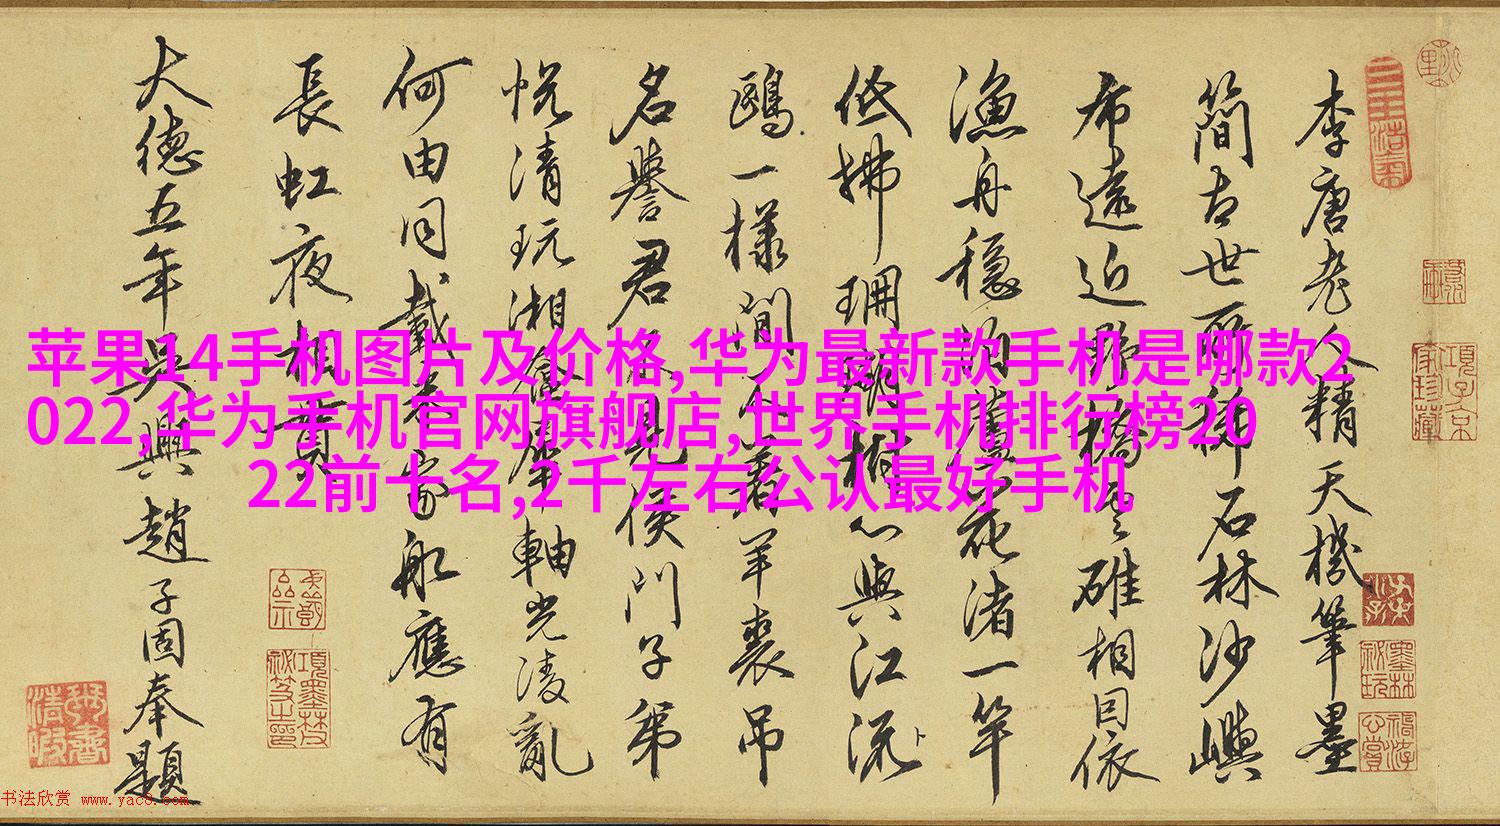 李唐老人精天機筆墨
簡古世所稀石林沙嶼
布遠近野橋碓相因依
漁舟穩泊蘆花渚一竿
低拂珊瑚心與江流
鷗一樣閒不着羊裘弔
名譽君不見侯門子弟
悅清玩湘簾犀軸光凌亂
何由同載米家船應有
長虹夜相貫
大德五年吳興趙子固奉題
苹果14手机图片及价格,华为最新款手机是哪款2
022,华为手机官网旗舰店,世界手机排行榜20
22前十名,2千左右公认最好手机
书法欣赏 www.yac8.com